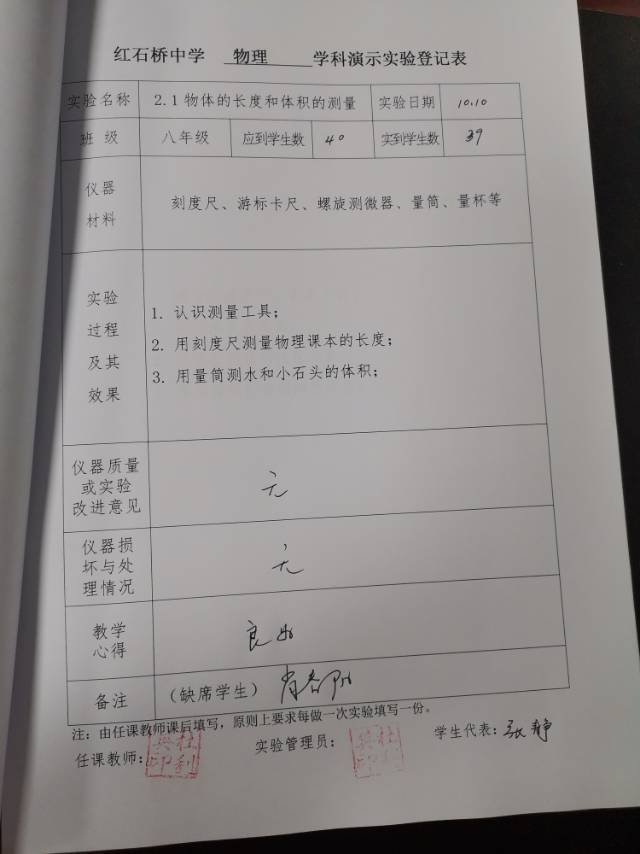 红石桥中学 物理 学科演示实验登记表
实验名称 2.1物体的长度和体积的测量 实验日期 10.10
班 级 八年级 应到学生数 40 实到学生数 39
仪器
材料
刻度尺、游标卡尺、螺旋测微器、量筒、量杯等
实验
过程
及其
效果
1. 认识测量工具;
2. 用刻度尺测量物理课本的长度;
3. 用量筒测水和小石头的体积;
仪器质量
或实验
改进意见
无
仪器损
坏与处
理情况
无
教学
心得
良好
备注 (缺席学生)
注: 由任课教师课后填写,原则上要求每做一次实验填写一份。
任课教师: 实验管理员: 学生代表: 张静